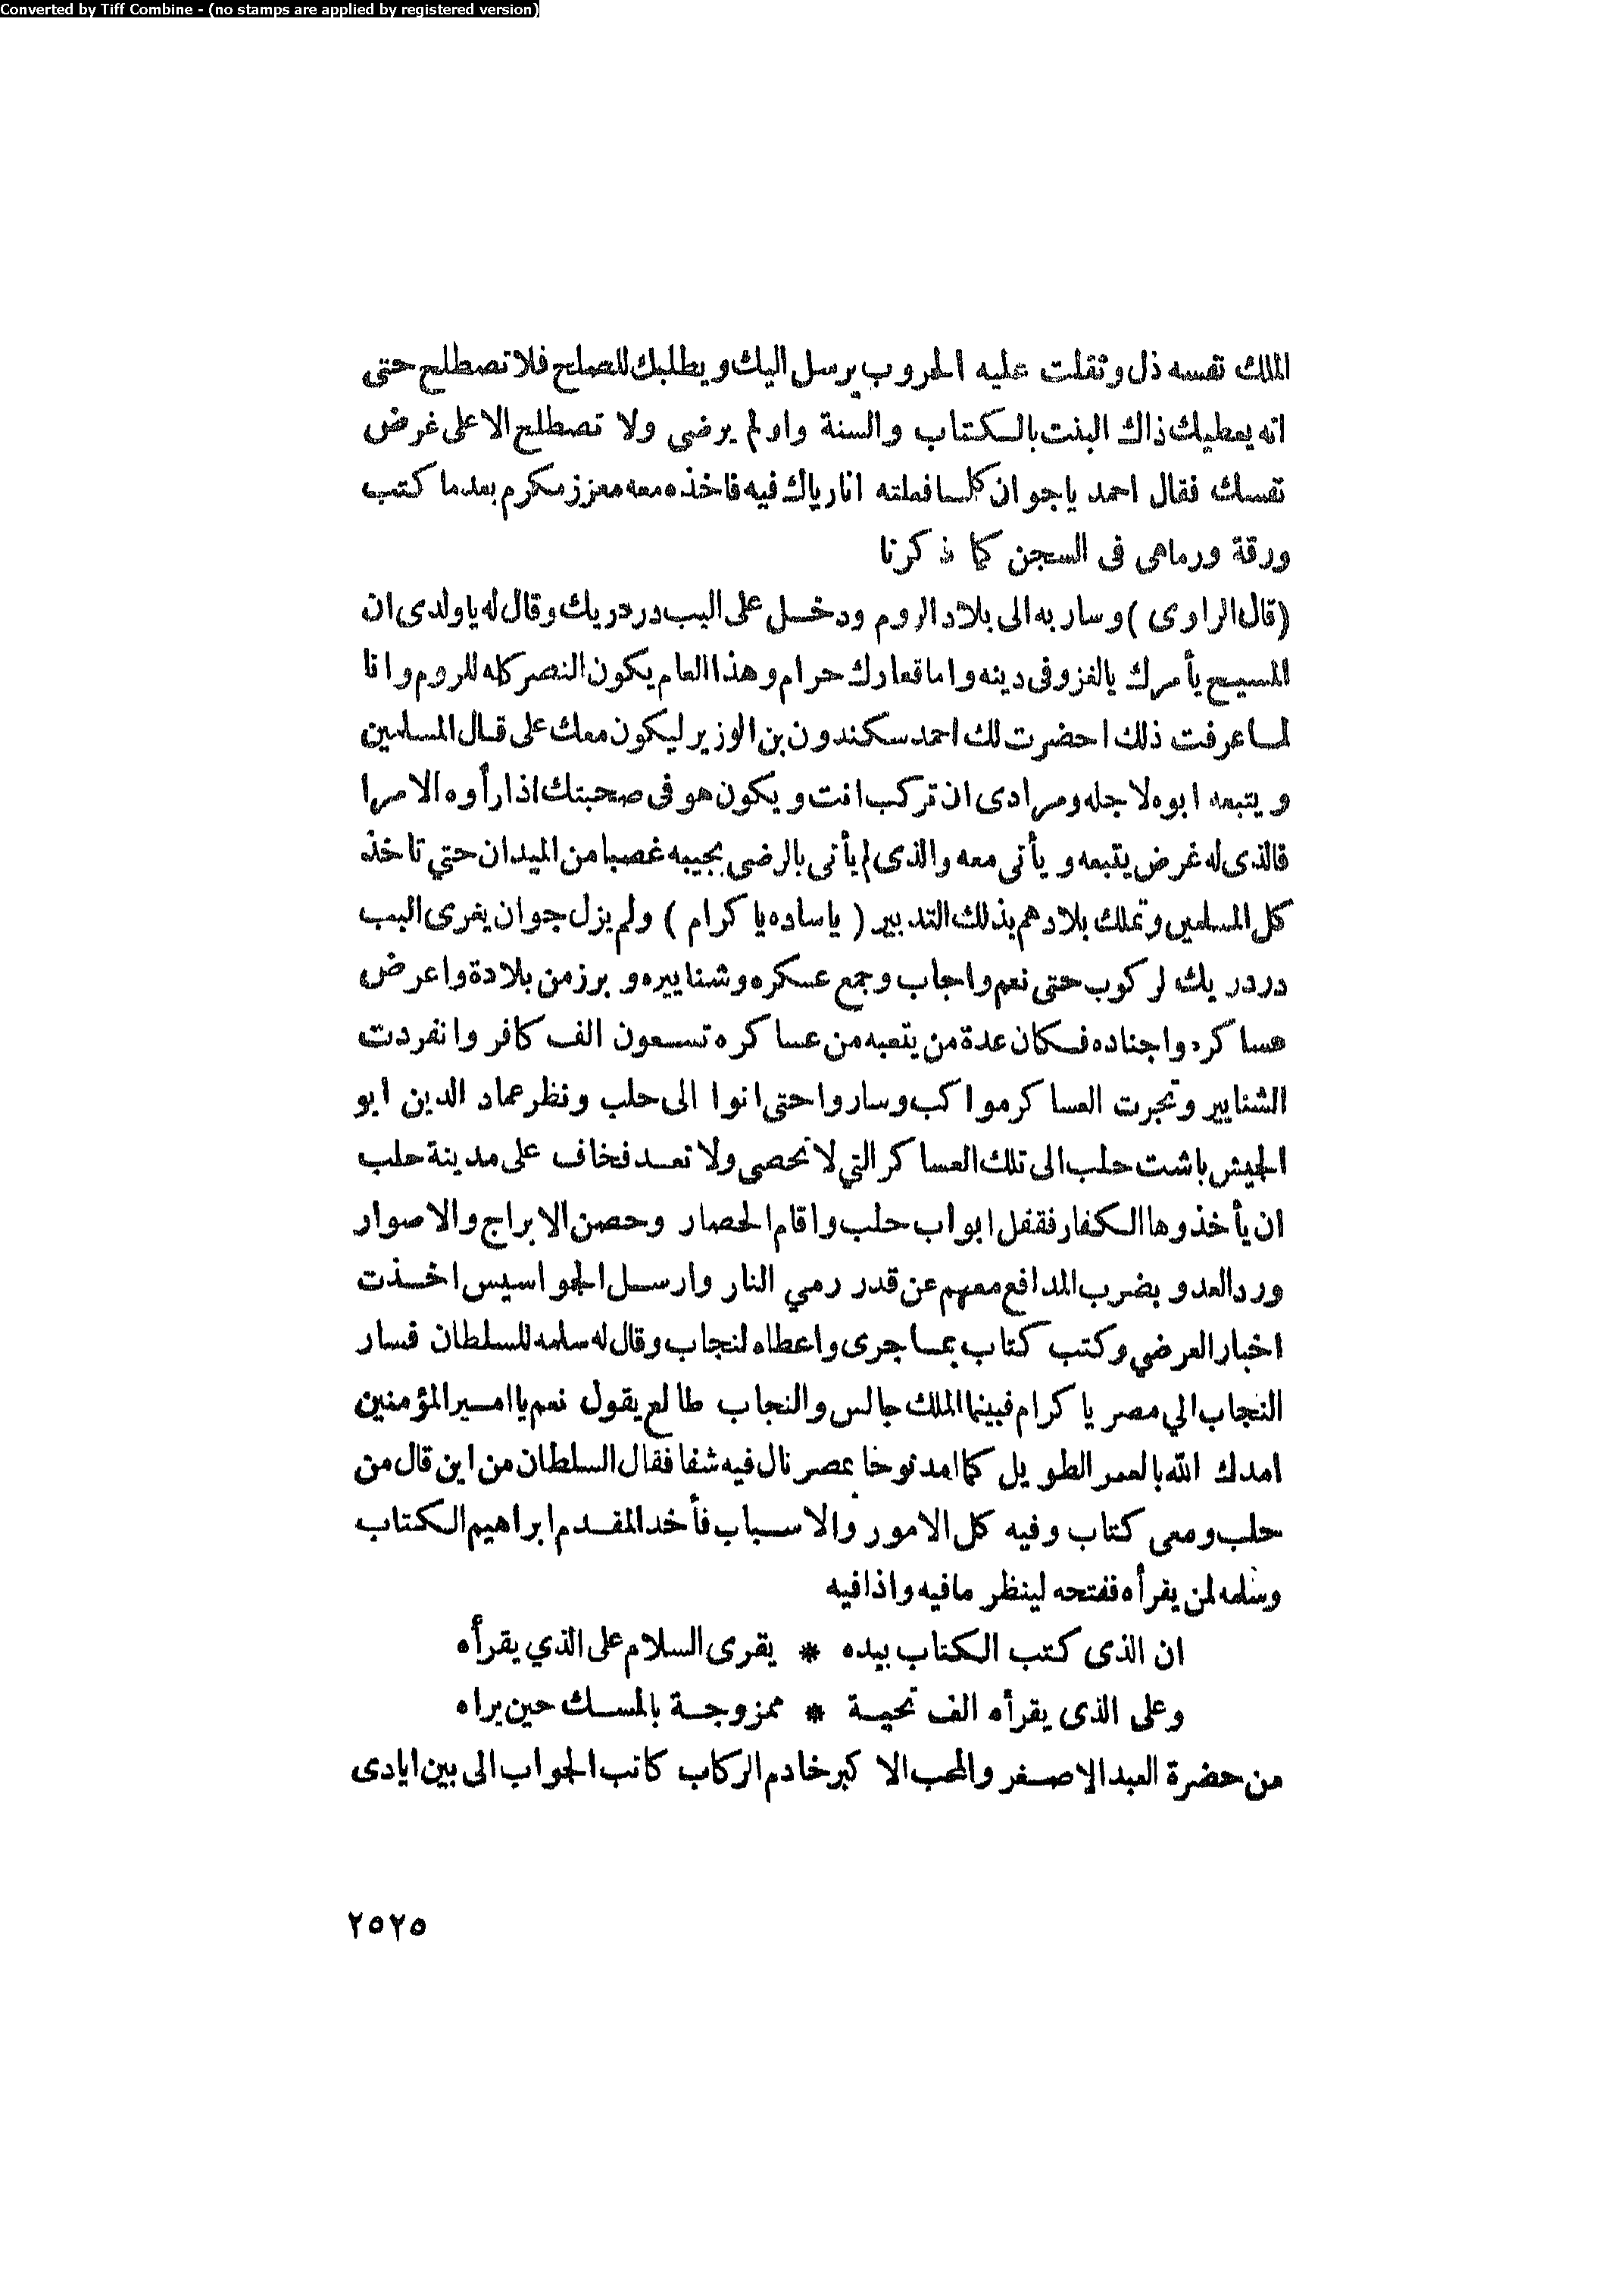 Converted by Tiff Combine - (no stamps are applied by registered version)
الملك نفسه ذل وثقلت عليه الحروب يرسل اليك ويطلبك للصلح فلا تصطلح حتى
انه يعطيك ذاك البنت بالكتاب والسنة واولم يرضى ولا تصطلح الا على غرض
نفسك فقال احمد ياجوان كلما فعلته انارياك فيه فاخذه معه معزز مكرم بعدما كتب
ورقة ورماهى فى السجن كما ذكرنا
(قال الراوى) وسار به الى بلاد الروم ودخل على البب دردريك وقال له ياولدى ان
المسيح يأمرك بالغزو فى دينه واما قعادك حرام وهذا العام يكون النصر كله للروم وانا
لما عرفت ذلك احضرت لك احمد سكندون بن الوزير ليكون معك على قتال المسلمين
ويتبعه ابوه لاجله ومرادى ان تركب انت ويكون هو فى صحبتك اذا رأوه الامرا
فالذى له غرض يتبعه ويأتى معه والذى لم يأتى بالرضى بجيبه غصبا من الميدان حتي تاخذ
كل المسلمين وتملك بلادهم بذلك التدبير (ياساده يا كرام) ولم يزل جوان يغرى البب
دردريك لركوب حتى نعم واجاب وجمع عسكره وشنايبره وبرز من بلادة واعرض
عساكره واجناده فكان عدة من يتعبه من عساكره تسعون الف كافر وانفردت
الشنايير وتجرت العساكر مواكب وساروا حتى اتوا الى حلب ونظر عماد الدين ابو
الجيش باشت حلب الى تلك العساكر التي لا تحصى ولا تعد فخاف على مدينة حلب
ان يأخذوها الكفار فقفل ابواب حلب واقام الحصار وحصن الابراج والاصوار
ورد العدو بضرب المدافع معهم عن قدر رمي النار وارسل الجواسيس اخذت
اخبار العرضي وكتب كتاب بما جرى واعطاه لنجاب وقال له سلمه للسلطان فسار
النجاب الي مصر يا كرام فبينما الملك جالس والنجاب طالع يقول نعم يا امير المؤمنين
امدك الله بالعمر الطويل كما امد نوحا بعصر نال فيه شفا فقال السلطان من اين قال من
حلب ومعى كتاب وفيه كل الامور والاسباب فأخد المقدم ابراهيم الكتاب
وسلمه لمن يقرأه ففتحه لينظر مافيه واذا فيه
ان الذى كتب الكتاب بيده * يقرى السلام على الذي يقرأه
وعلى الذى يقرأه الف تحية * ممزوجة بالمسك حين يراه
من حضرة العبد الاصغر والمحب الاكبر خادم الركاب كاتب الجواب الى بين ايادى
٢٥٢٥